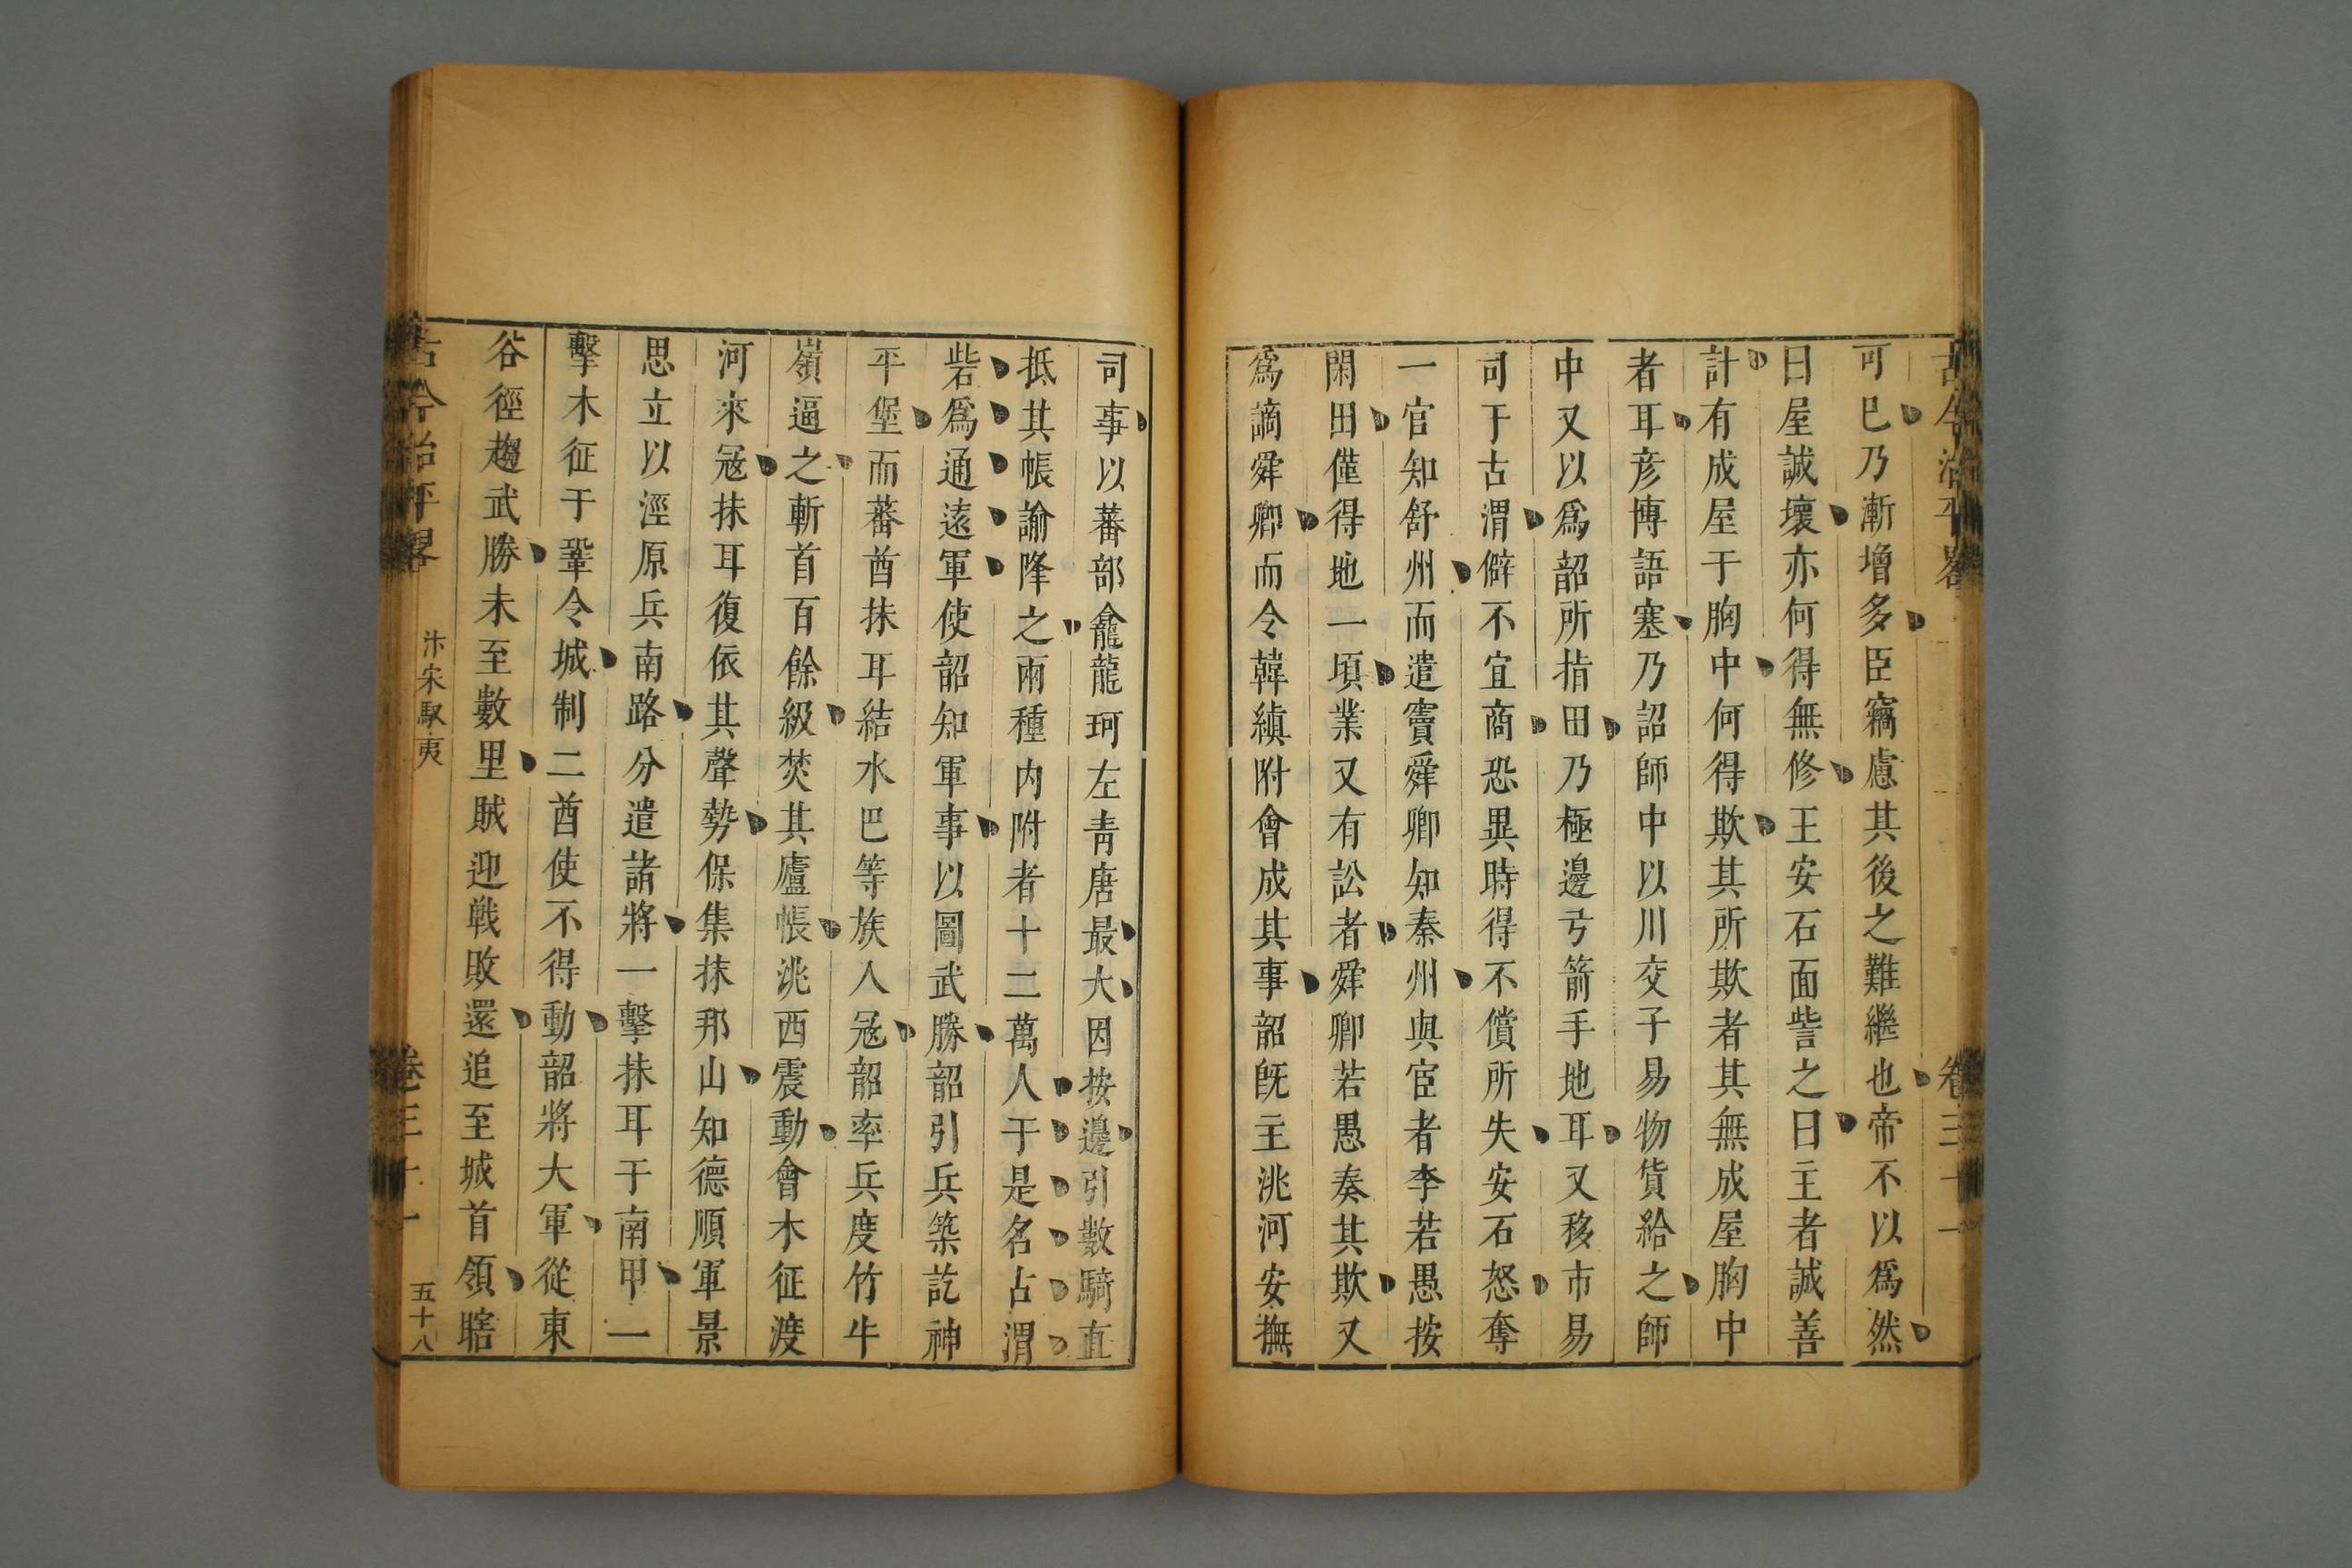 古今治平畧 卷三十一
可已乃漸增多臣竊慮其後之難繼也帝不以爲然
曰屋誠壞亦何得無修王安石面訾之曰主者誠善
計有成屋于胸中何得欺其所欺者其無成屋胸中
者耳彦博語塞乃詔師中以川交子易物貨給之師
中又以爲韶所指田乃極邊弓箭手地耳又移市易
司于古渭僻不宜商恐異時得不償所失安石怒奪
一官知舒州而遣竇舜卿知秦州與宦者李若愚按
閑田僅得地一頃業又有訟者舜卿若愚奏其欺又
爲謫舜卿而令韓縝附會成其事韶旣主洮河安撫
司事以蕃部龕龍珂左靑唐最大因按邊引數騎直
抵其帳諭降之兩種内附者十二萬人于是名占渭
砦爲通遠軍使韶知軍事以圖武勝韶引兵築訖神
平堡而蕃酋抹耳結水巴等族人冦韶率兵度竹牛
嶺逼之斬首百餘級焚其廬帳洮西震動會木征渡
河來冦抹耳復依其聲勢保集抹邦山知德順軍景
思立以涇原兵南路分遣諸將一擊抹耳于南甲一
擊木征于鞏令城制二酋使不得動韶將大軍從東
谷徑趨武勝未至數里賊迎戰敗還追至城首領瞎
古今治平畧 汴宋馭夷 卷三十一 五十八